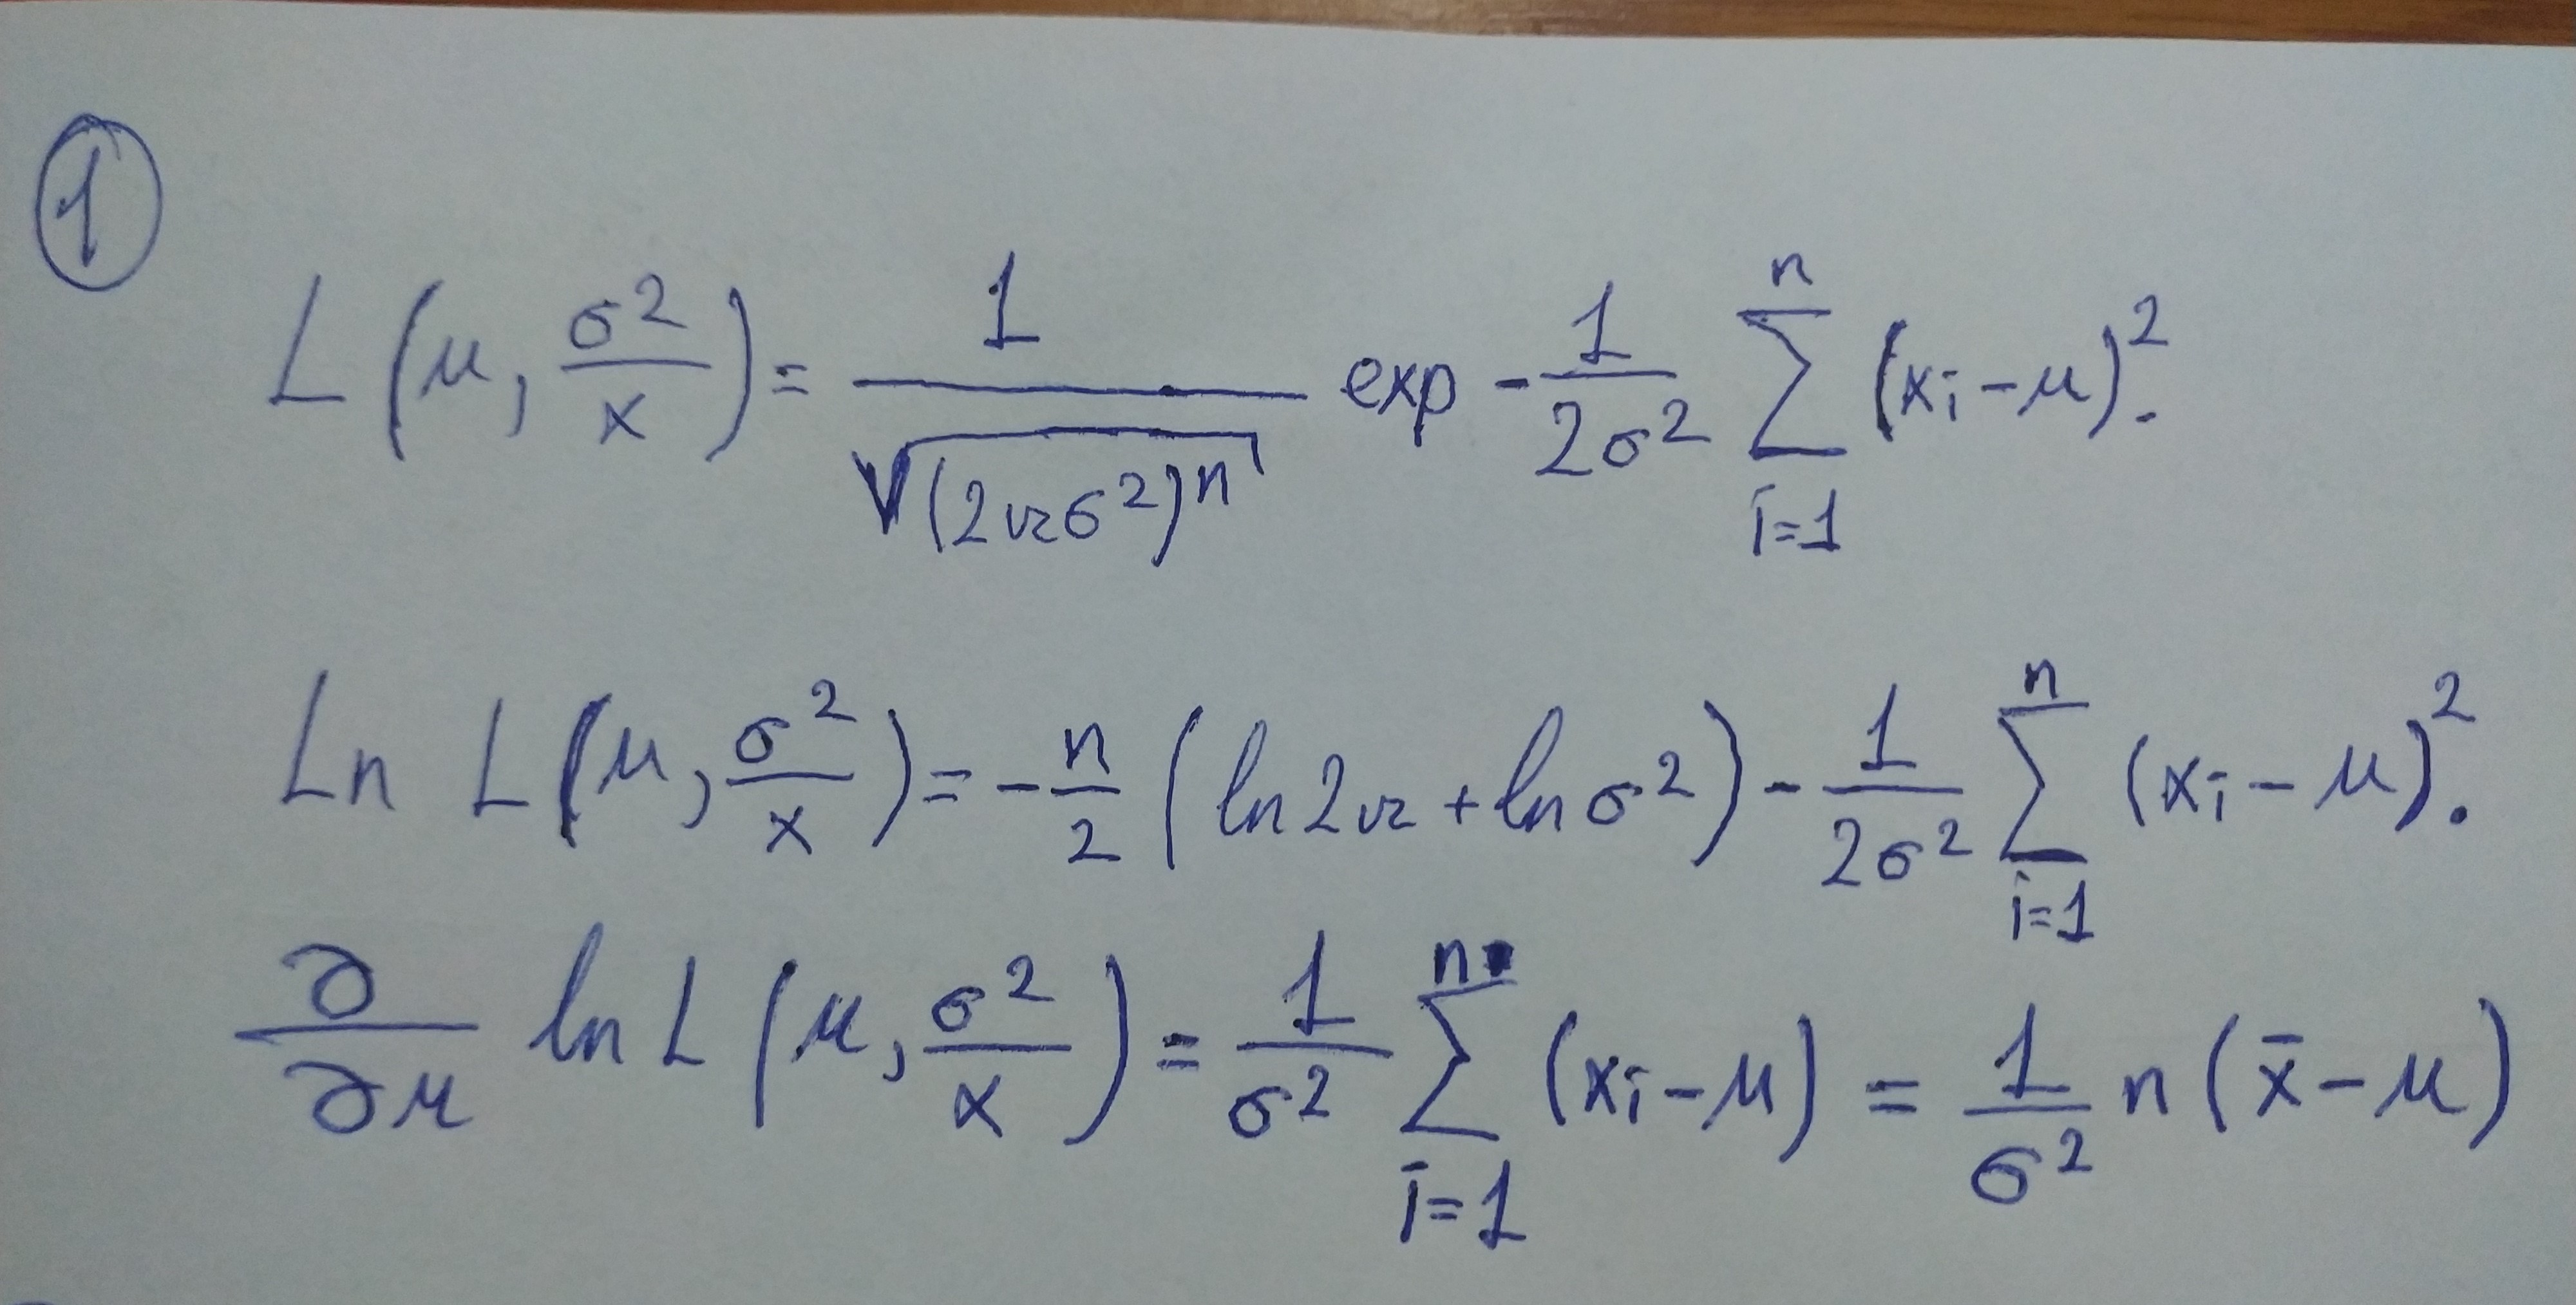 1
L(μ, σ²/x) = 1/√((2πσ²)ⁿ) exp - 1/(2σ²) ∑_{i=1}^{n} (xi - μ)².
Ln L(μ, σ²/x) = - n/2 (ln 2π + ln σ²) - 1/(2σ²) ∑_{i=1}^{n} (xi - μ)².
∂/∂μ ln L(μ, σ²/x) = 1/σ² ∑_{i=1}^{n} (xi - μ) = 1/σ² n(x̄ - μ)